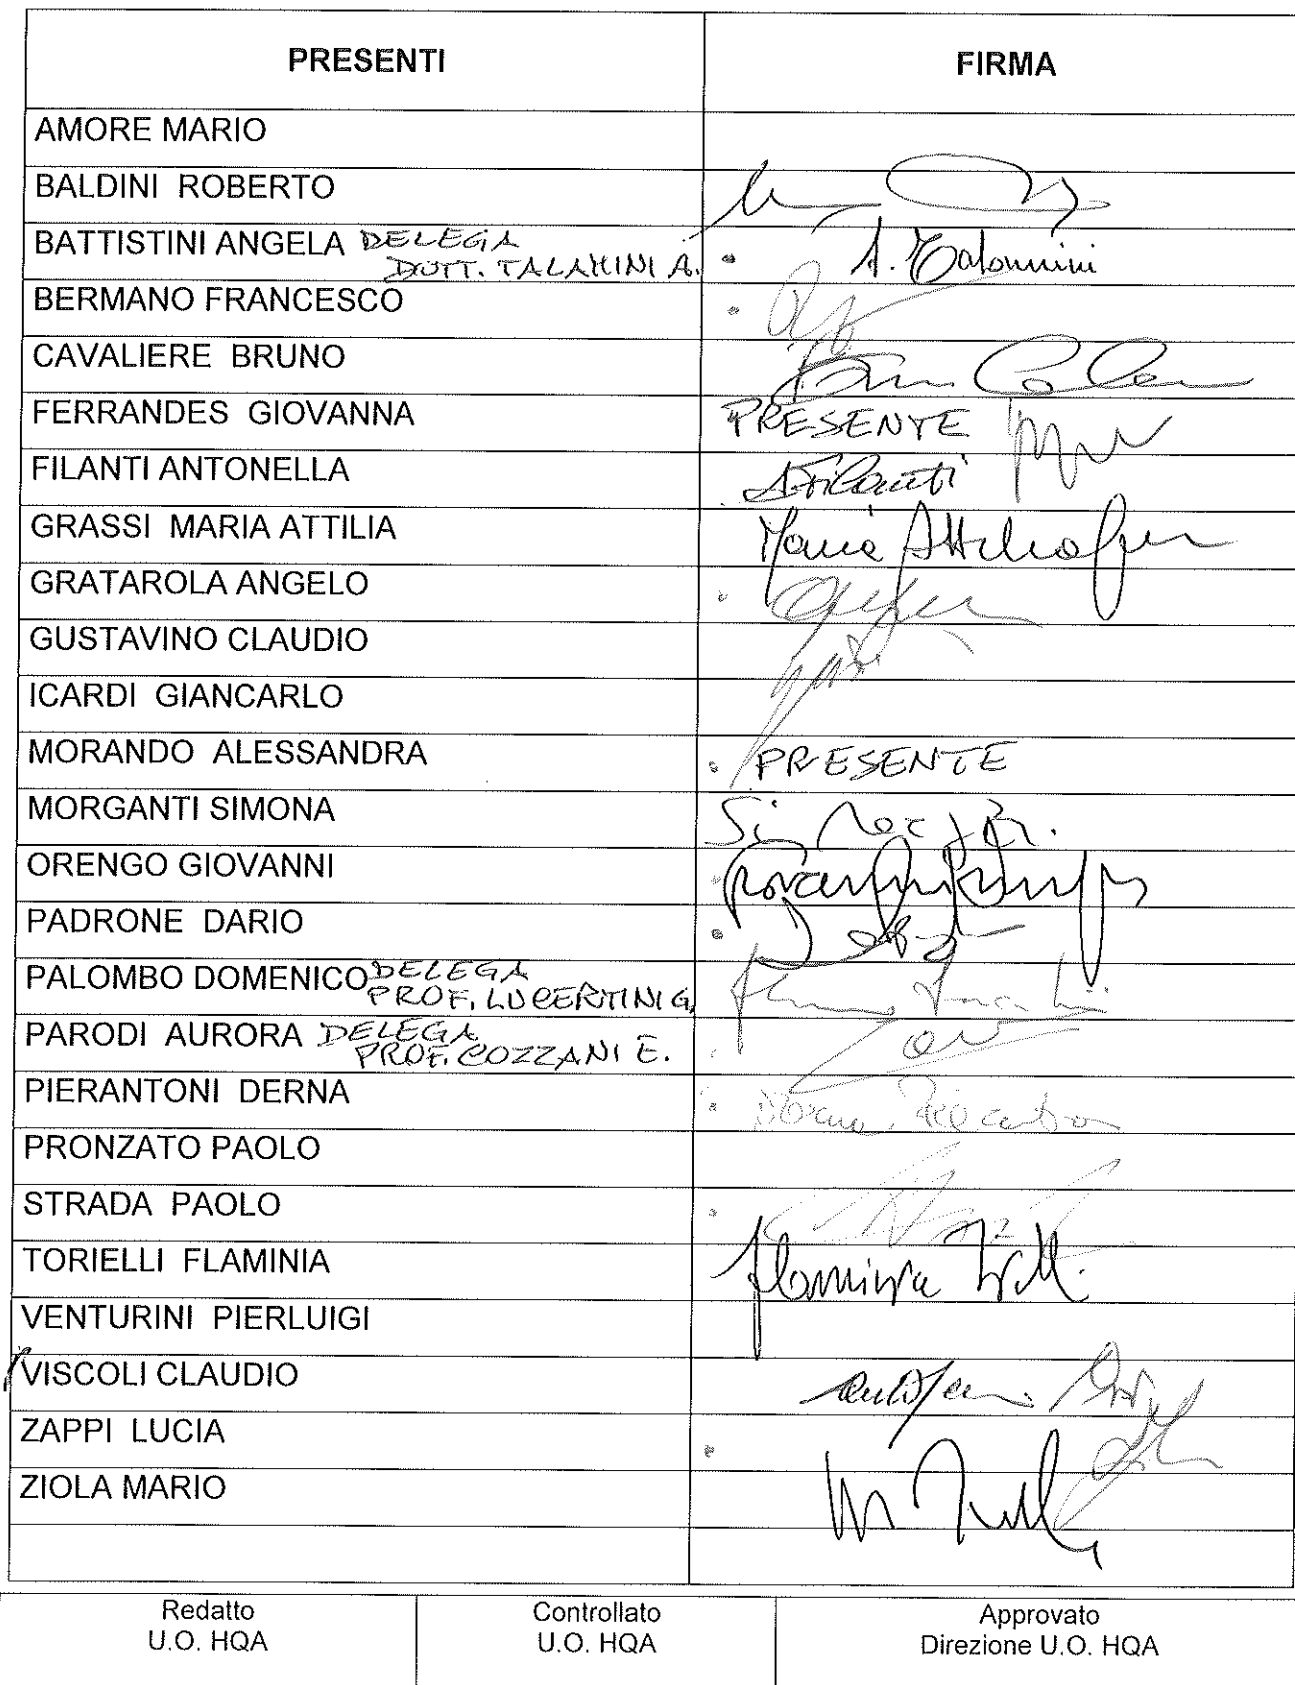 PRESENTI FIRMA
AMORE MARIO
BALDINI ROBERTO
BATTISTINI ANGELA DELEGA
DOTT. TALAMINI A. A. Talammini
BERMANO FRANCESCO
CAVALIERE BRUNO
FERRANDES GIOVANNA PRESENTE
FILANTI ANTONELLA AFilanti
GRASSI MARIA ATTILIA Maria Attilia
GRATAROLA ANGELO
GUSTAVINO CLAUDIO
ICARDI GIANCARLO
MORANDO ALESSANDRA PRESENTE
MORGANTI SIMONA
ORENGO GIOVANNI
PADRONE DARIO
PALOMBO DOMENICO DELEGA
PROF. LUCERTINI G.
PARODI AURORA DELEGA
PROF. COZZANI E.
PIERANTONI DERNA
PRONZATO PAOLO
STRADA PAOLO
TORIELLI FLAMINIA Flaminia
VENTURINI PIERLUIGI
VISCOLI CLAUDIO
ZAPPI LUCIA
ZIOLA MARIO
Redatto Controllato Approvato
U.O. HQA U.O. HQA Direzione U.O. HQA